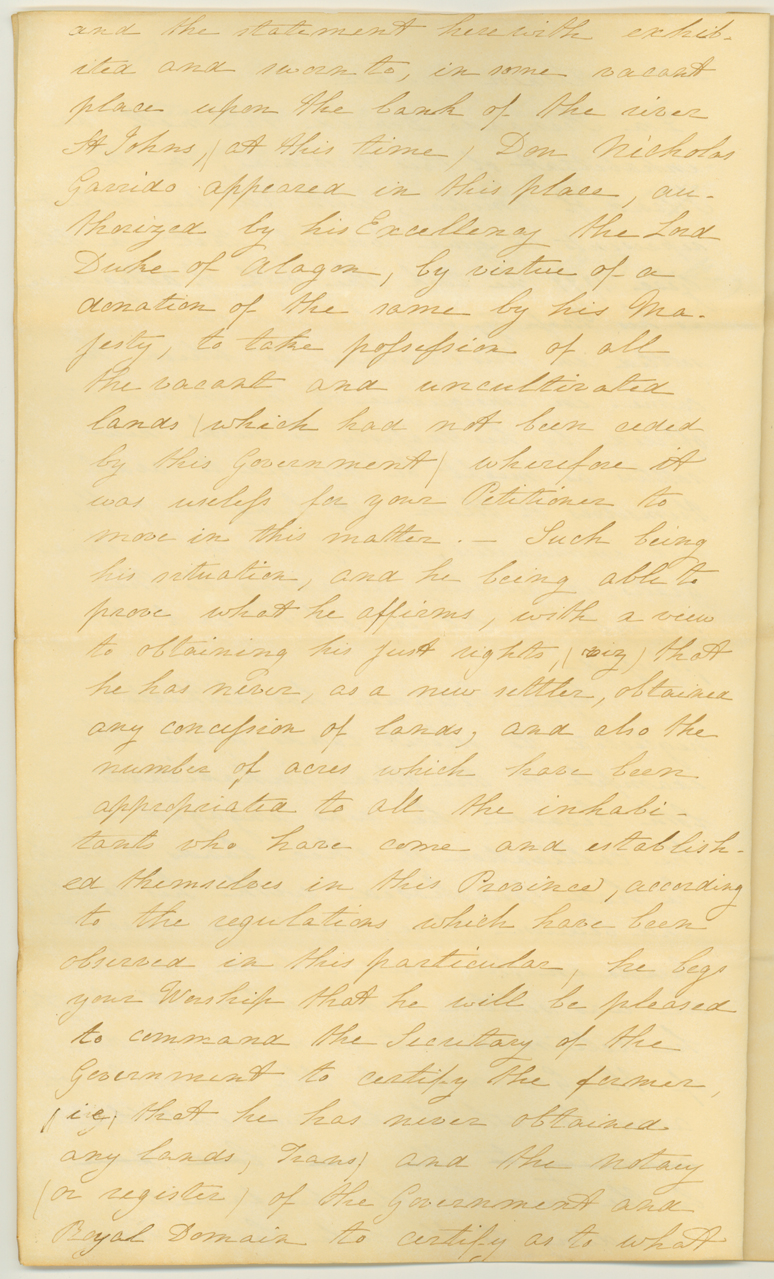 and the statement herewith exhib-
ited and sworn to, in some vacant
place upon the bank of the river
St Johns, (at this time) Don Nicholas
Garrido appeared in this place, au-
thorized by his Excellency the Lord
Duke of Alagon, by virtue of a
donation of the same by his Ma-
jesty, to take possession of all
the vacant and uncultivated
lands (which had not been ceded
by this Government) wherefore it
was useless for your Petitioner to
move in this matter. — Such being
his situation, and he being able to
prove what he affirms, with a view
to obtaining his just rights, (viz) that
he has never, as a new settler, obtained
any concession of lands, and also the
number of acres which have been
appropriated to all the inhabi-
tants who have come and establish-
ed themselves in this Province, according
to the regulations which have been
observed in this particular, he begs
your Worship that he will be pleased
to command the Secretary of the
Government to certify the former,
(i e, that he has never obtained
any lands, Trans) and the notary
(or register) of the Government and
Royal Domain to certify as to what